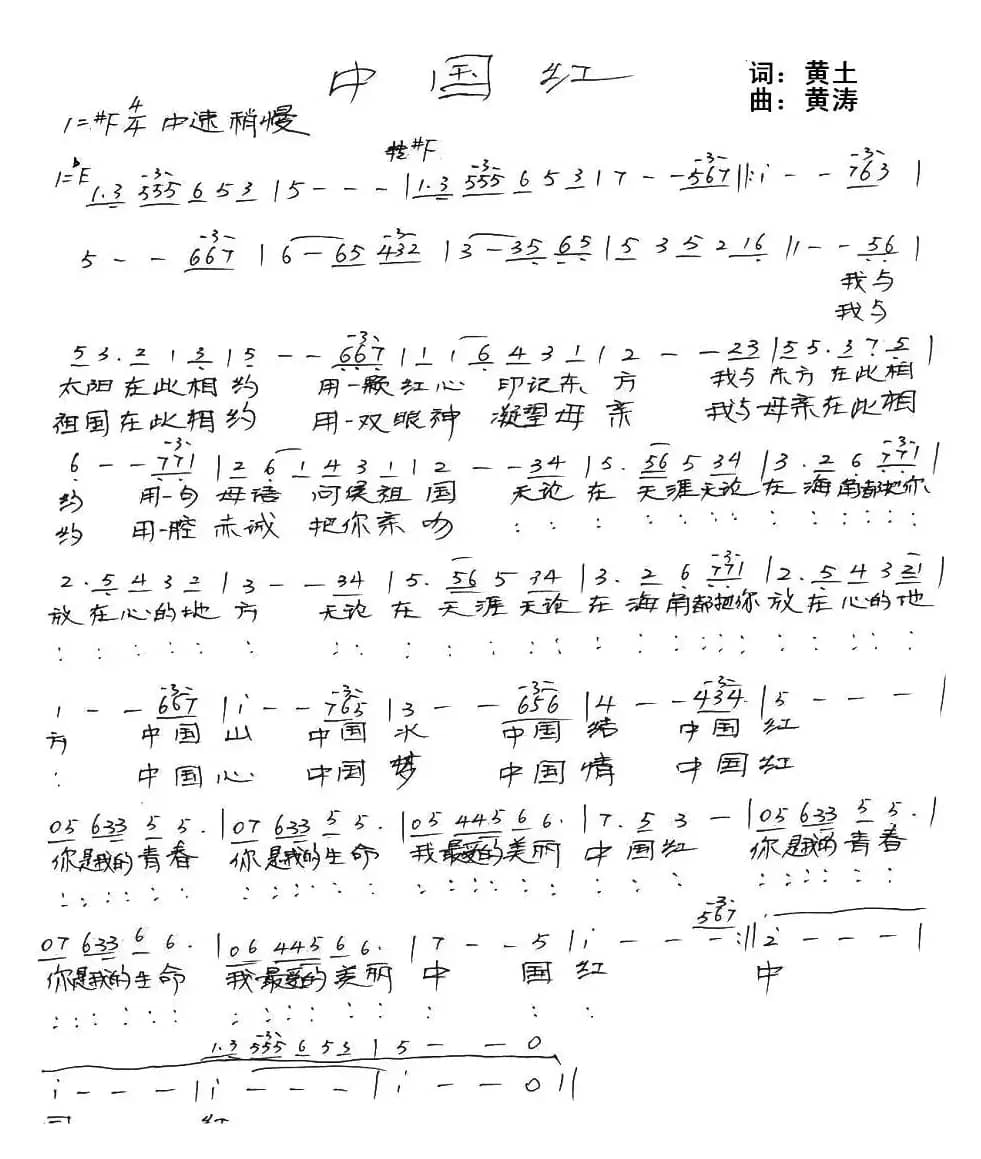 中国红
词：黄土
曲：黄涛
1=#F 4/4 中速稍慢
转#F
1=bE 1.3 555 6 5 3 | 5 - - - | 1.3 555 6 5 3 | 7 - - 567 ||: i - - 763 |
5 - - 667 | 6 - 65 432 | 3 - 35 65 | 5 3 5 2 16 | 1 - - 56 |
我与
我与
5 3. 2 1 3 | 5 - - 667 | 1 1 6 4 3 1 | 2 - - 23 | 5 5. 3 7 5 |
太阳在此相约 用一颗红心 印记东方 我与东方在此相
祖国在此相约 用一双眼神 凝望母亲 我与母亲在此相
6 - - 771 | 2 6 1 4 3 1 | 2 - - 34 | 5. 56 5 34 | 3. 2 6 771 |
约 用一句母语 问侯祖国 无论在天涯无论在海角都把你
约 用一腔赤诚 把你亲吻 : : : : : : : : : : : : :
2. 5 4 3 2 | 3 - - 34 | 5. 56 5 34 | 3. 2 6 771 | 2. 5 4 3 21 |
放在心的地方 无论在天涯无论在海角都把你放在心的地
: : : : : : : : : : : : : : : : : : : : : : : :
1 - - 667 | i - - 765 | 3 - - 656 | 4 - - 434 | 5 - - - |
方 中国山 中国水 中国结 中国红
: 中国心 中国梦 中国情 中国红
05 633 5 5. | 07 633 5 5. | 05 445 6 6. | 7. 5 3 - | 05 633 5 5. |
你是我的青春 你是我的生命 我最爱的美丽 中国红 你是我的青春
: : : : : : : : : : : : : : : : : : : : : : : : : : :
567
07 633 6 6. | 06 445 6 6. | 7 - - 5 | i - - - :|| 2 - - - |
你是我的生命 我最爱的美丽 中国红 中
: : : : : : : : : : : : : : :
1.3 555 6 5 3 | 5 - - 0
i - - - | i - - - | i - - 0 ||
国 红